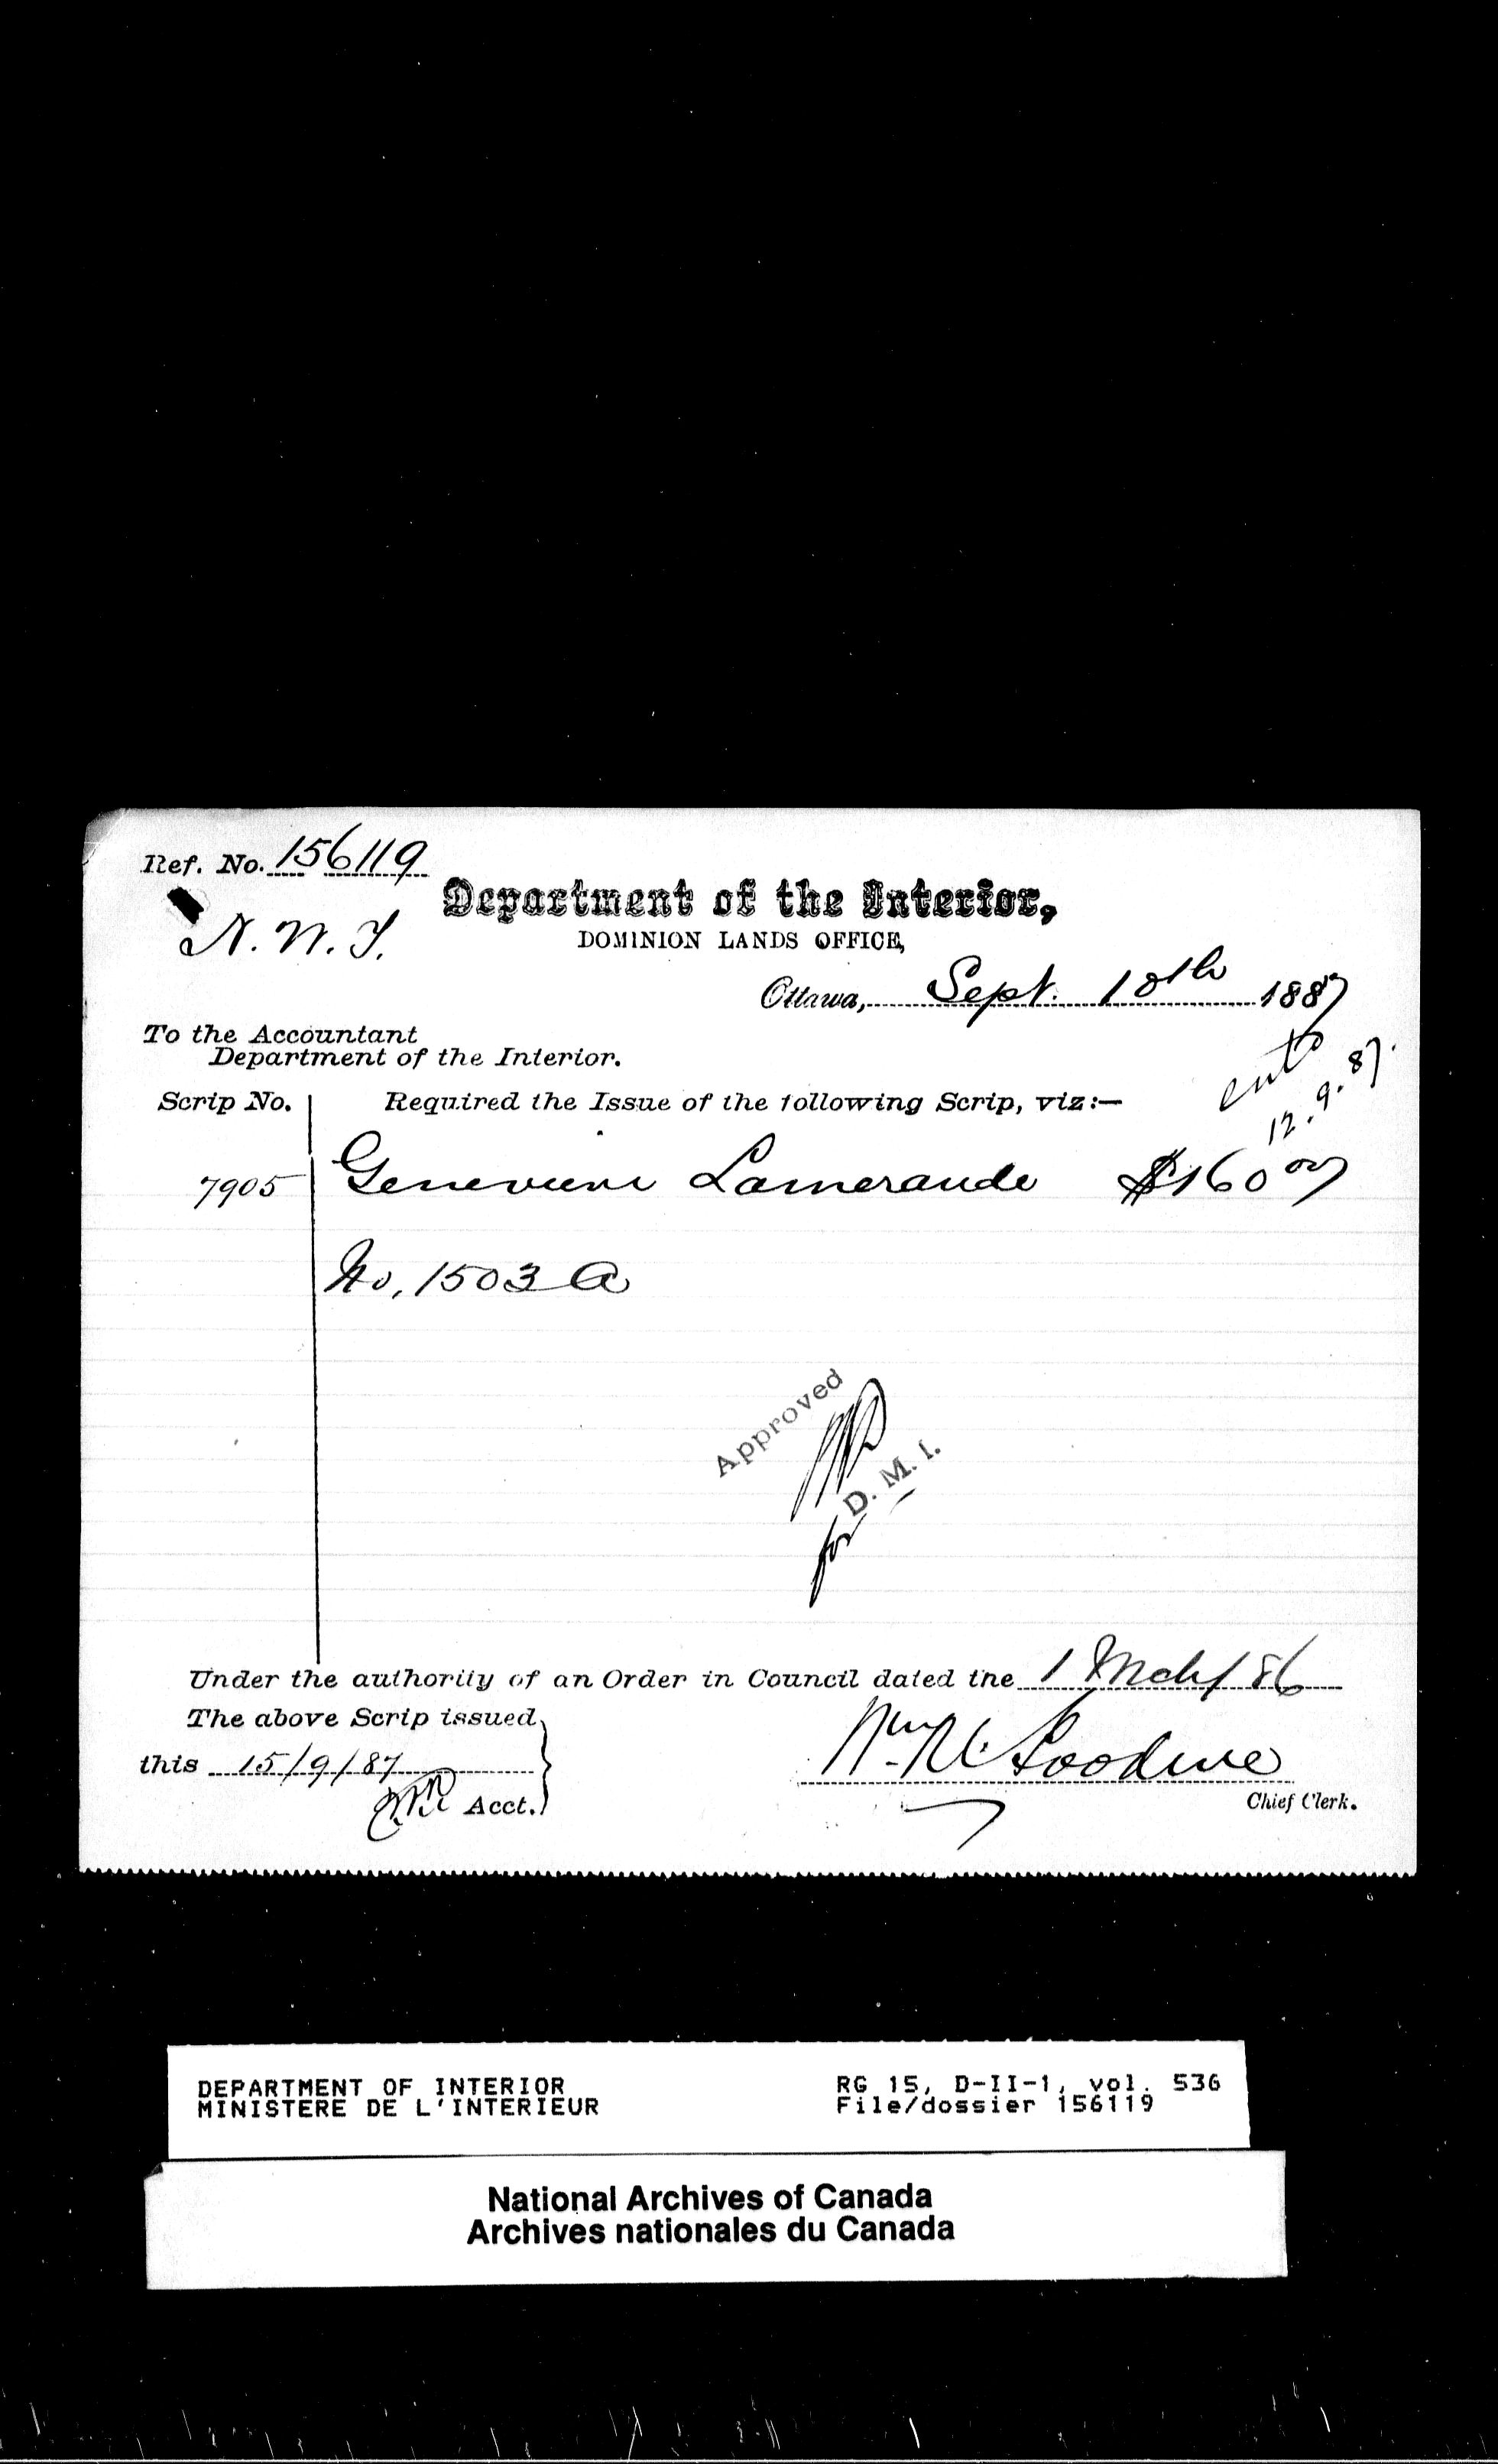 Ref. No. 156119
N. W. T.
Department of the Interior,
DOMINION LANDS OFFICE,
Ottawa, Sept. 10th 1887
To the Accountant
Department of the Interior.
Scrip No. Required the Issue of the following Scrip, viz:—
12.9.87.
7905 Genevieve Lamerande $160 00
No. 1503 A
Approved
for D. M. I.
Under the authority of an Order in Council dated the 1 Mch/86
The above Scrip issued
this 15/9/87
Acct.
Wm M Goodeve
Chief Clerk.
DEPARTMENT OF INTERIOR
MINISTERE DE L'INTERIEUR
RG 15, D-II-1, vol. 536
File/dossier 156119
National Archives of Canada
Archives nationales du Canada